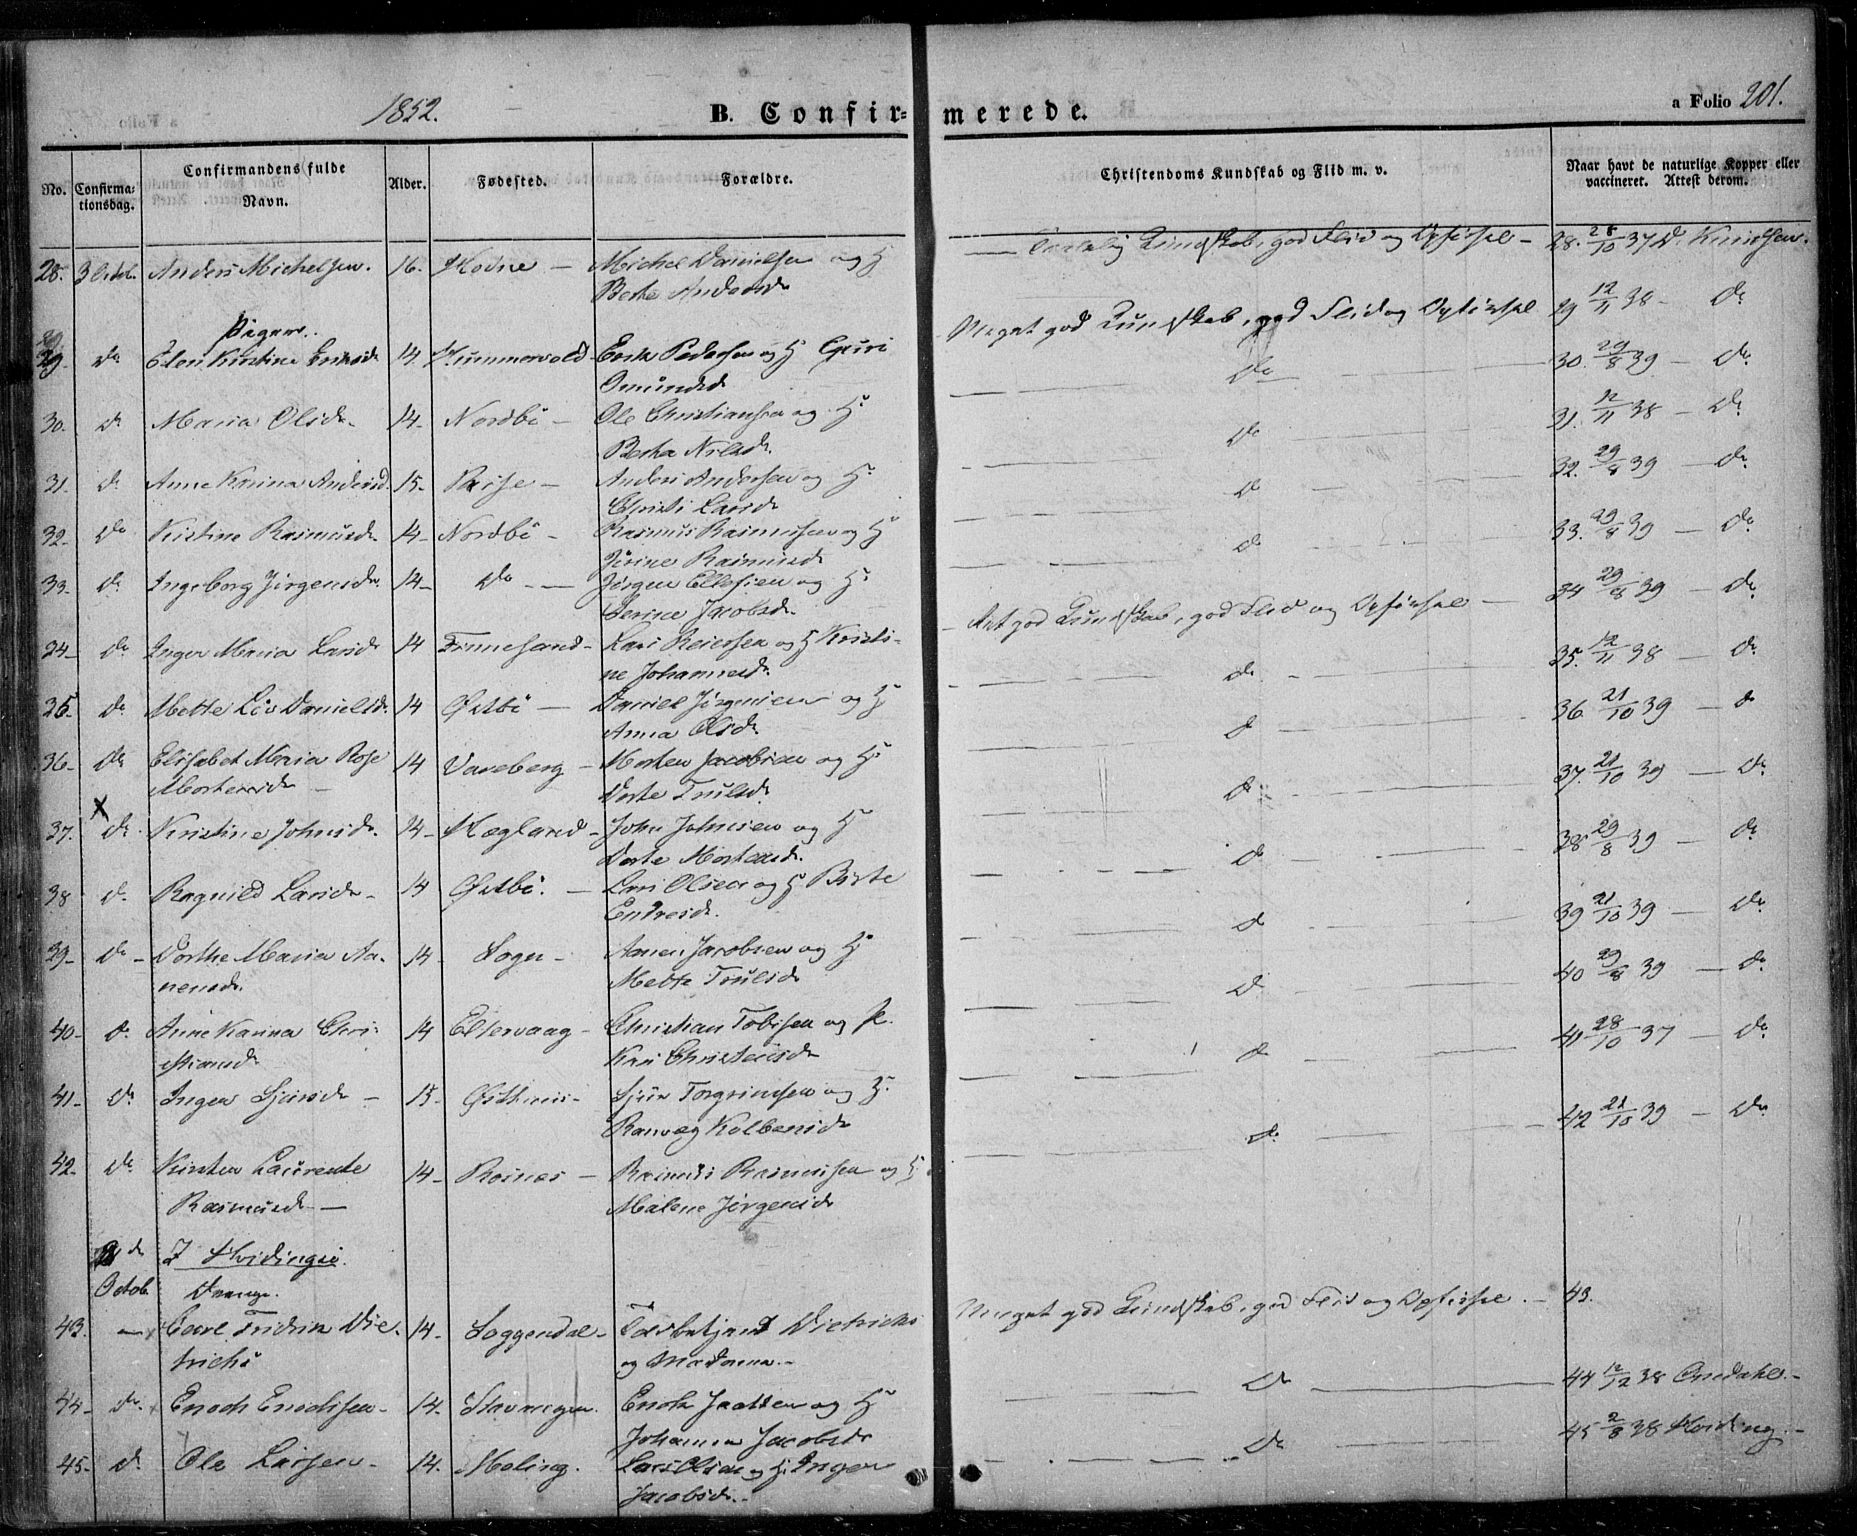 1852.
B. Confirmerede.
a Folio 201.
No.
Confirmationsdag.
Confirmandens fulde Navn.
Alder.
Fødested.
Forældre.
Christendoms Kundskab og Flid m. v.
Naar havt de naturlige Kopper eller vaccineret. Attest derom.
28. 3 Anders Michelsen. 16. Hodne — Michel Danielsen og H
Berta Andersd
Kundskab, god Flid og Opførsel — 28. 28/10 37 Knudsen.
Piger.
29. do Elen Kristine Eriksd 14. Hummervold Erik Pedersen og H Guri
Omundsd
Meget god Kundskab, god Flid og Opførsel 29 12/11 38 — Do
30. do Maria Olsd. 14. Nordbö — Ole Christiansen og H.
Berta Nilsd.
Do 30. 29/8 39 — Do
31. do Anne Karina Andersd. 15. — Anders Andersen og H.
Christi Larsd.
Do 31. 12/11 38 — Do
32. Do Kristine Rasmusd. 14 — Nordbö — Rasmus Rasmussen og H
Jörine Rasmusd.
do 32. 29/8 39 — do
33. do Ingeborg Jörgensd. 14 — Do — Jörgen Ellefsen og H.
Serine Jacobsd.
do 33. 29/8 39 — Do
34 — do Inger Maria Larsd. 14 Finnesand — Lars Reiersen og H Kristi-
ne Johannesd.
god Kundskab, god Flid og Opførsel — 34 29/8 39 — do
35. do Mette Liv Danielsd. 14 Østbö — Daniel Jörgensen og H
Anna Olsd.
do 35. 12/11 38 — do
36 — do Elisabet Maria Rose
Mortensd — 14 Vaseberg — Morten Jacobsen og H.
Dorte Trulsd.
do 36. 21/10 39 — do
x
37. do Kristine Johnsd. 14 — Hægland — John Johnsen og H
Dorte Mortensd.
do 37. 21/10 39 — do
38 do Ragnild Larsd — 14 Østbö. — Lars Olsen og H Berte
Endresd.
do 38 29/8 39 — do
39 — do — Dorthe Maria Aa-
nensd. 14 — Sogn — Aanen Jacobsen og H
Mette Trulsd.
do 39 21/10 39 — do
40 — do Anne Karina Chri-
stiansd 14 Eltervaag — Christian Tobisen og H.
Kari Christensd.
do 40 29/8 39 — do
41 — do Inger Sjursd — 15 — Østhuus — Sjur Torgrimsen og H.
Ranveg Kolbensd.
do 41 28/10 37 — do
42 — do Kirsten Laurente
Rasmusd — 14 — Rosnæs — Rasmus Rasmussen og H
Malene Jörgensd.
do 42 21/10 39 — do
Octob.
I Hvidingsö.
Drenge.
43. Carl Fredrik Die-
trichs 14. Soggendal — Toldbetjent Dietrichs
og Madame. —
Meget god Kundskab, god Flid og Opførsel. — 43.
44 — do Enoch Enochsen — 14. Enok og H
Johanna Jacobsd.
Do 44 12/12 38
45 — do Ole Larsen — 14. Meling. Lars Olsen og H. Inger
Jacobsd. —
Do 45 2/8 38 Hviding. —